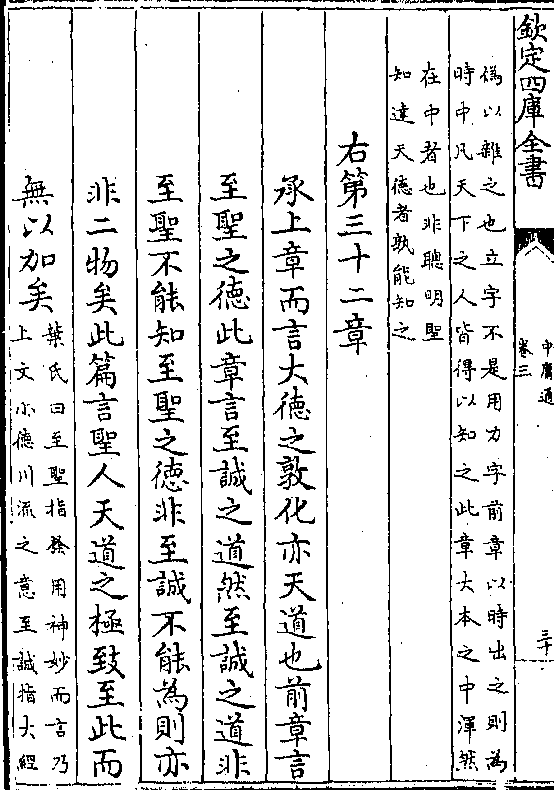 欽定四庫全書
中庸通
卷三
三十
偽以雜之也立字不是用力字前章以時出之則為
時中凡天下之人皆得以知之此章大本之中渾然
在中者也非聰明聖
知達天德者孰能知之
右第三十二章
承上章而言大德之敦化亦天道也前章言
至聖之德此章言至誠之道然至誠之道非
至聖不能知至聖之德非至誠不能為則亦
非二物矣此篇言聖人天道之極致至此而
無以加矣
葉氏曰至聖指發用神妙而言乃
上文小德川流之意至誠指大經